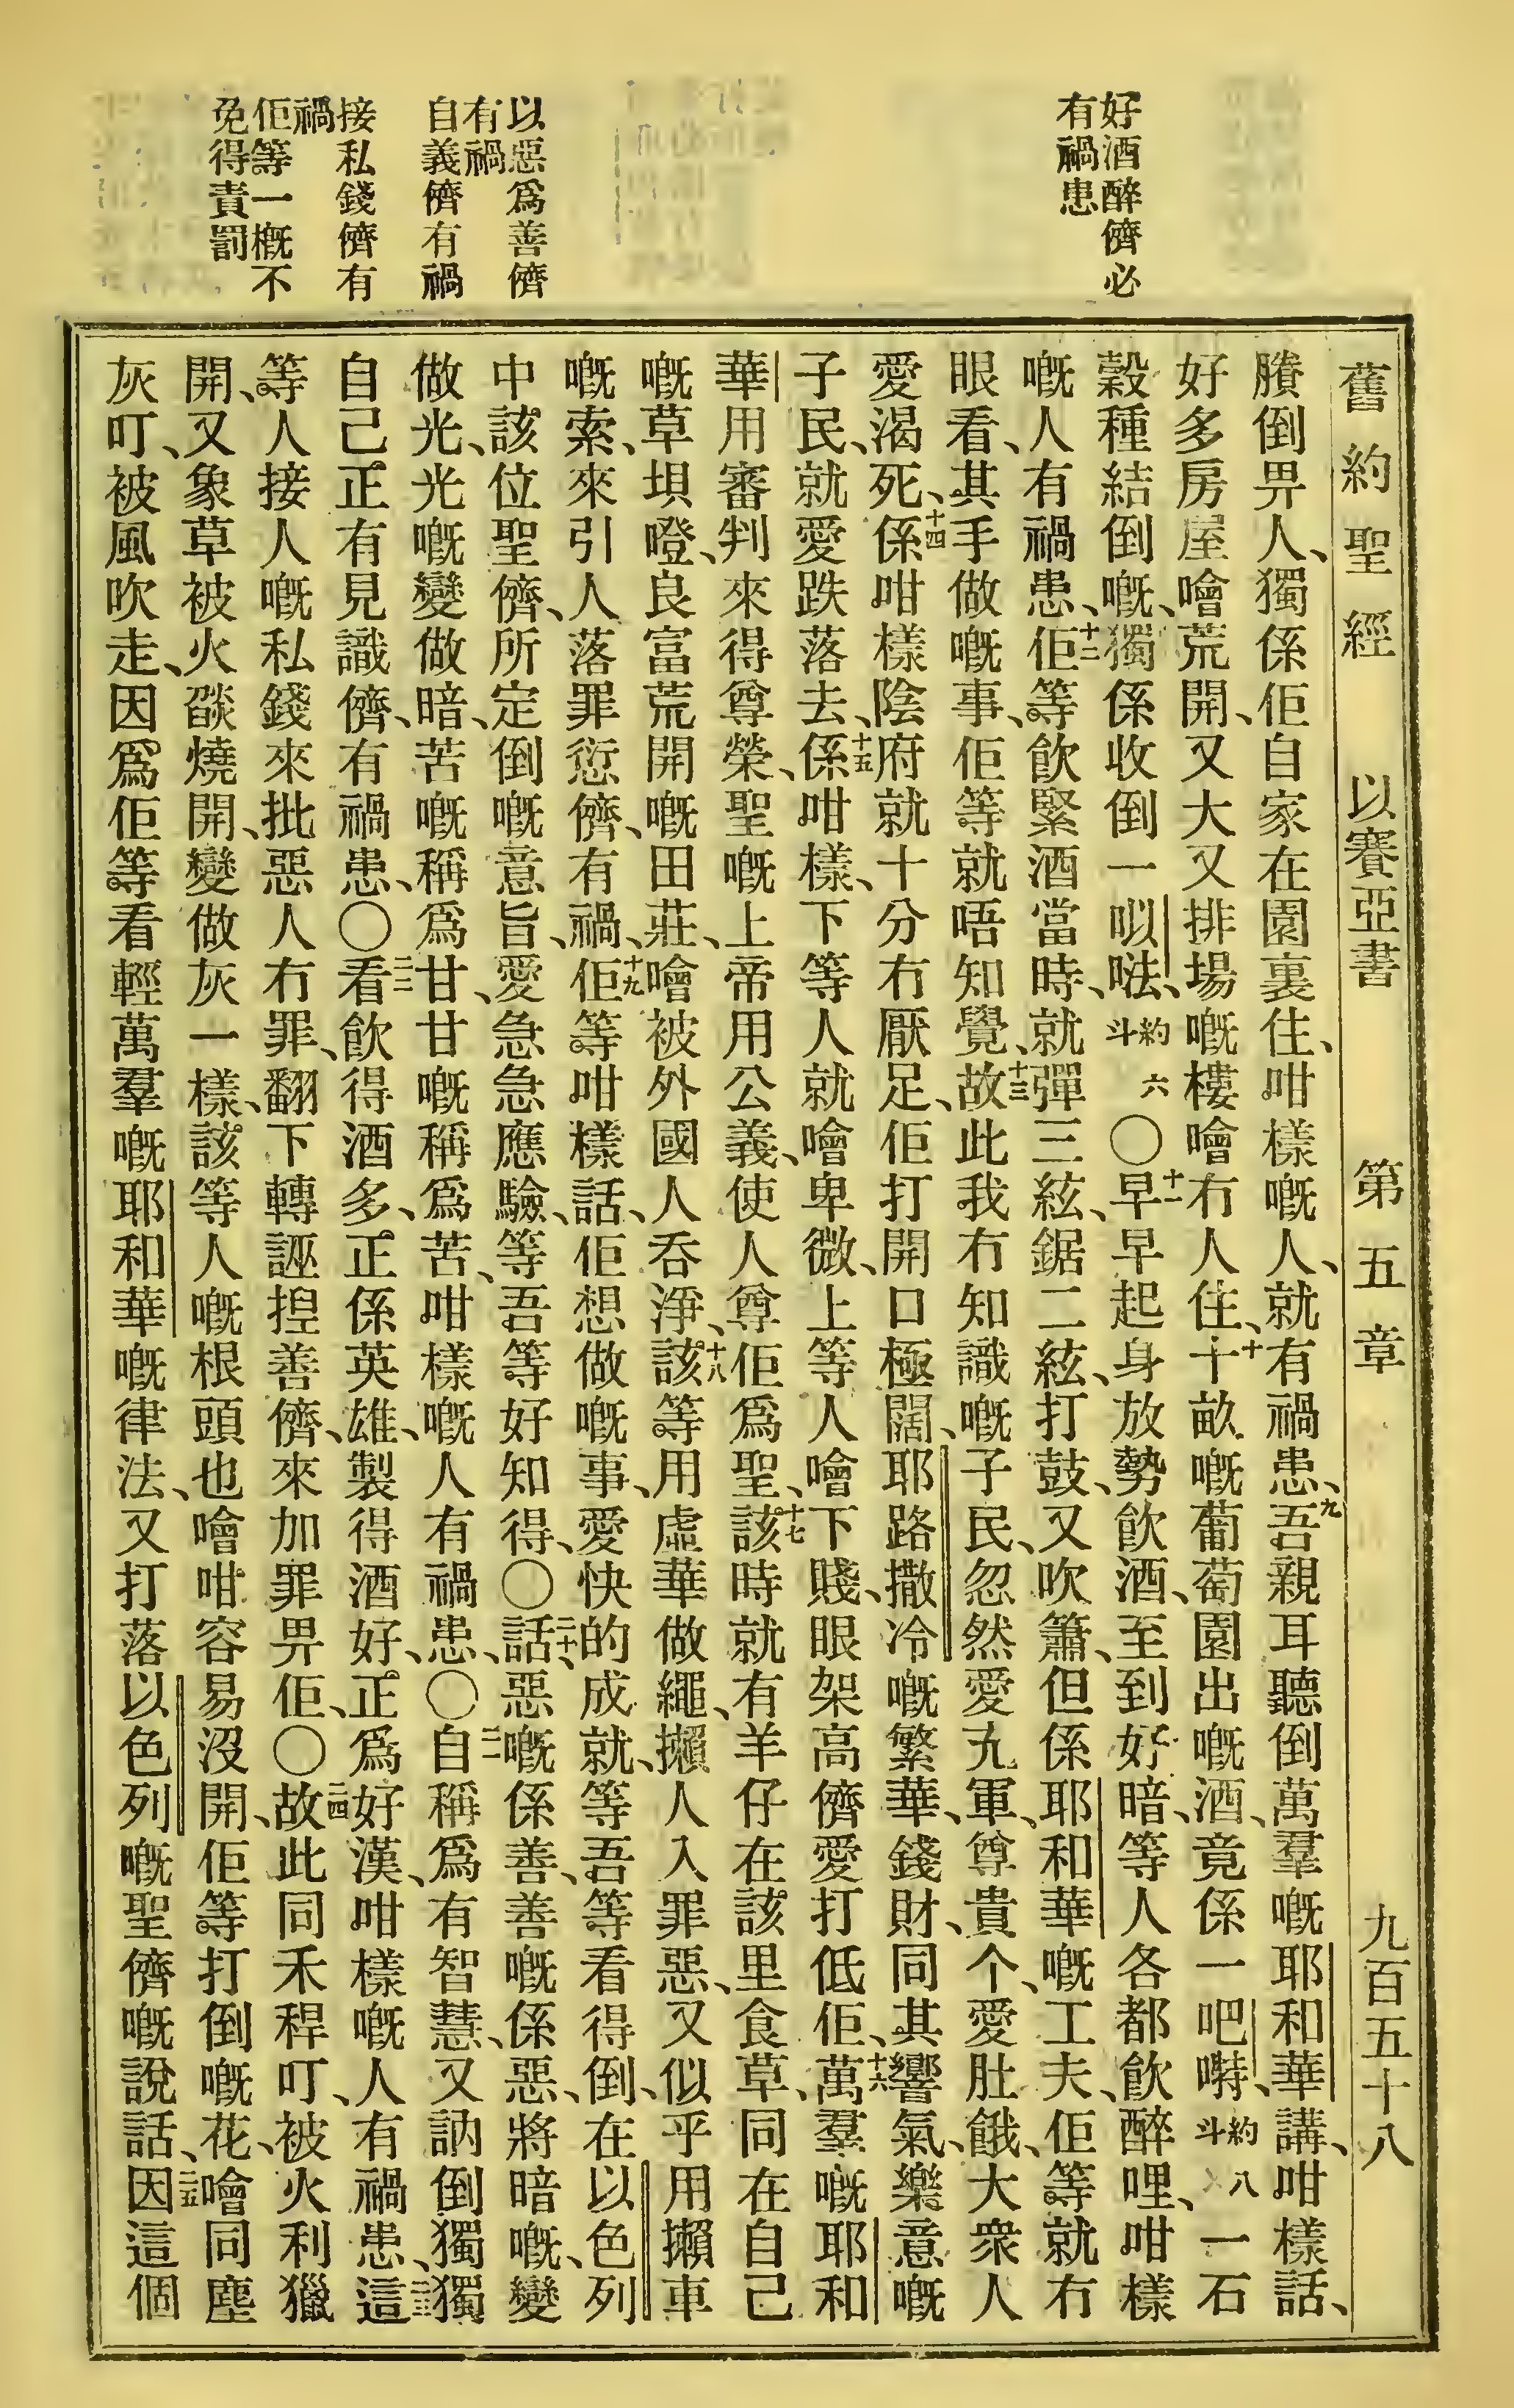 舊約聖經　以賽亞書　第五章　九百五十八
好酒醉儕必
有禍患
以惡爲善儕
有禍
自義儕有禍
接私錢儕有
禍
佢等一概不
免得責罰
賸倒畀人、獨係佢自家在園裏住、咁樣嘅人、就有禍患、九吾親耳聽倒萬羣嘅耶和華講、咁樣話、
好多房屋噲荒開、又大又排場嘅樓噲冇人住、十十畝嘅葡萄園出嘅酒、竟係一吧㘉、約八斗一石
穀種結倒嘅、獨係收倒一㕥㗁、約六斗〇十一早早起身放勢飲酒、至到好暗、等人各都飲醉哩、咁樣
嘅人有禍患、十二佢等飲緊酒當時、就彈三絃、鋸二絃、打鼓、又吹簫、但係耶和華嘅工夫、佢等就冇
眼看、其手做嘅事、佢等就唔知覺、十三故此我冇知識嘅子民、忽然愛充軍、尊貴个、愛肚餓、大衆人
愛渴死、十四係咁樣陰府就十分冇厭足、佢打開口極闊、耶路撒冷嘅繁華、錢財、同其響氣、樂意嘅
子民、就愛跌落去、十五係咁樣、下等人就噲卑微、上等人噲下賤、眼架高儕愛打低佢、十六萬羣嘅耶和
華用審判來得尊榮、聖嘅上帝用公義、使人尊佢爲聖、十七該時就有羊仔在該里食草、同在自己
嘅草垻噔、良富荒開嘅田莊、噲被外國人吞淨、十八該等用虛華做繩、攋人入罪惡、又似乎用攋車
嘅索、來引人落罪愆儕、有禍、十九佢等咁樣話、佢想做嘅事、愛快的成就、等吾等看得倒、在以色列
中該位聖儕、所定倒嘅意旨、愛急急應驗、等吾等好知得、〇二十話、惡嘅係善、善嘅係惡、將暗嘅、變
做光、光嘅變做暗、苦嘅稱爲甘、甘嘅稱爲苦、咁樣嘅人有禍患、〇二一自稱爲有智慧、又訥倒獨獨
自己正有見識儕、有禍患、〇二二看飲得酒多、正係英雄、製得酒好、正爲好漢、咁樣嘅人有禍患、二三這
等人接人嘅私錢來批惡人冇罪、翻下轉誣揑善儕、來加罪畀佢、〇二四故此同禾稈叮、被火利獵
開、又象草被火燄燒開、變做灰一樣、該等人嘅根頭也噲咁容易沒開、佢等打倒嘅花、噲同塵
灰叮、被風吹走、因爲佢等看輕萬羣嘅耶和華嘅律法、又打落以色列嘅聖儕嘅說話、二五因這個